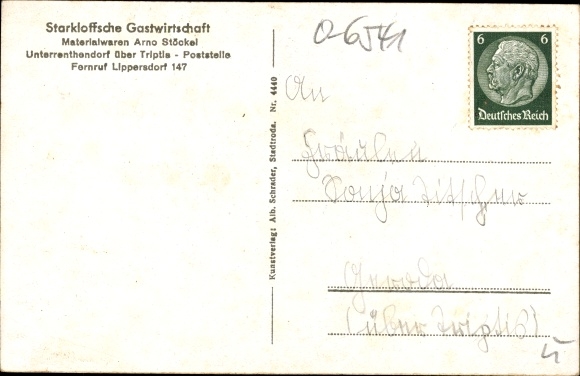 Starkloffsche Gastwirtschaft
Materialwaren Arno Stöckel
Unterrenthendorf über Triptis - Poststelle
Fernruf Lippersdorf 147
Kunstverlag: Alb. Schrader, Stadtroda. Nr. 4440
0-6541
6 6
Deutsches Reich
An
Fräulein
Sonja
Geroda
(über Triptis)